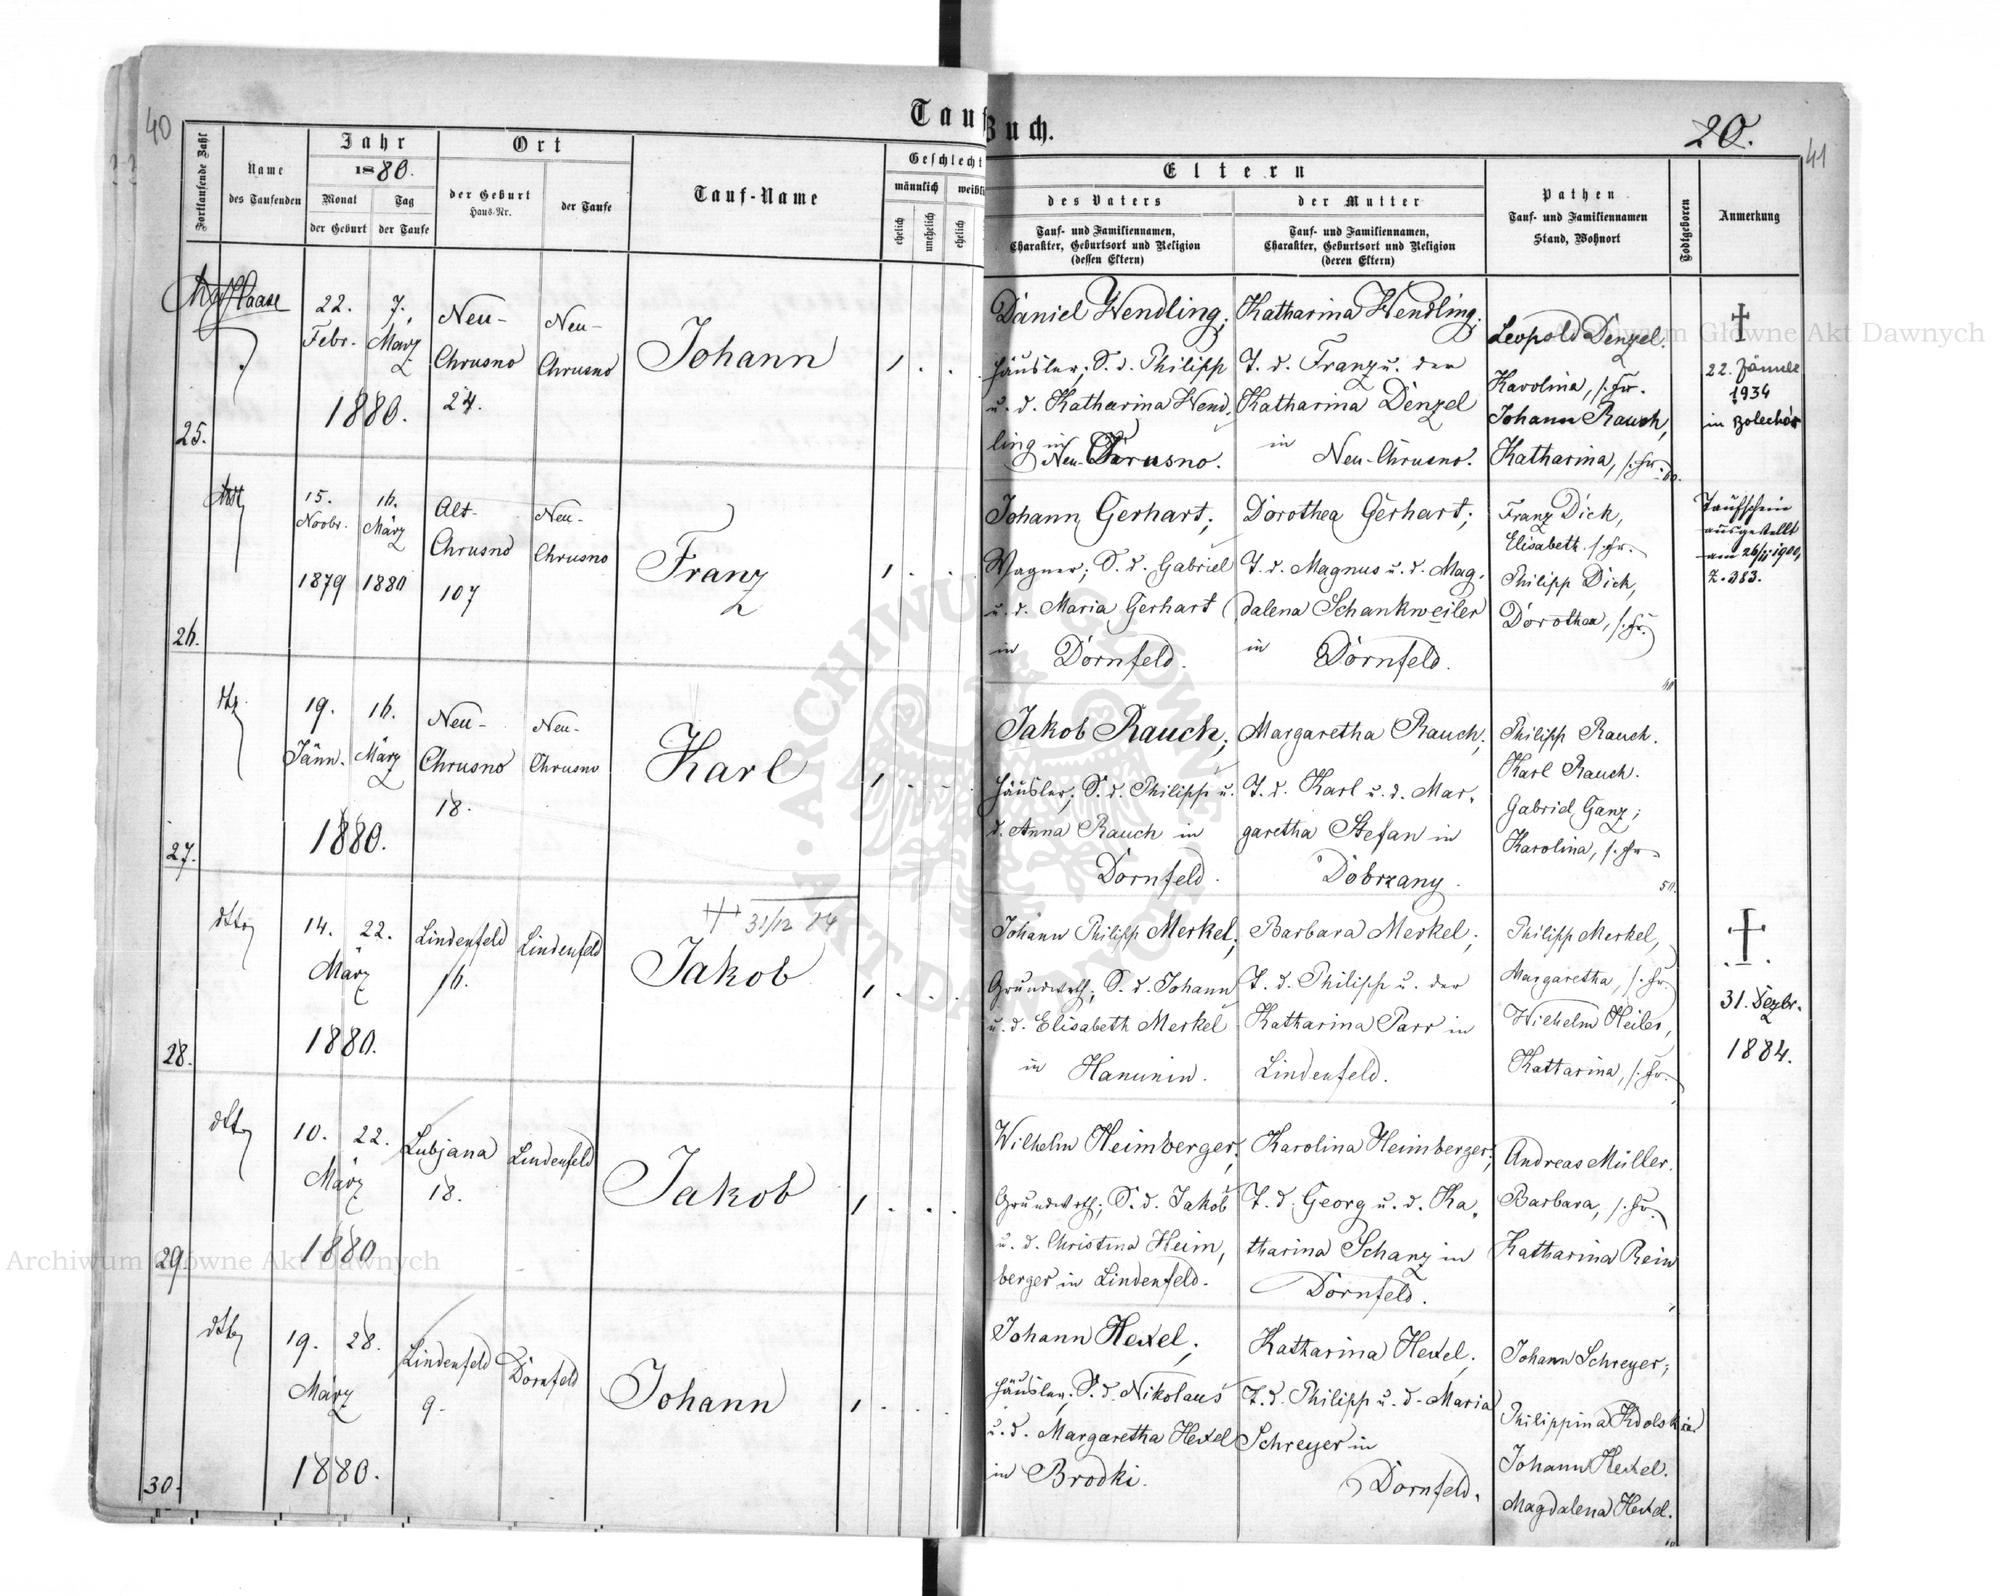 40
Tauf
Buch.
20.
41
Fortlaufende Zahl
Name
des Taufenden
Jahr
1880.
Monat
der Geburt
Tag
der Taufe
Ort
der Geburt
Haus-Nr.
der Taufe
Tauf-Name
Geschlecht
männlich
weibli
ehelich
unehelich
ehelich
Eltern
des Vaters
Tauf- und Familiennamen,
Charakter, Geburtsort und Religion
(dessen Eltern)
der Mutter
Tauf- und Familiennamen,
Charakter, Geburtsort und Religion
(deren Eltern)
Pathen
Tauf- und Familiennamen
Stand, Wohnort
Todtgeboren
Anmerkung
25.
Haase
22.
Febr.
7.
März
1880.
Neu-
Chrusno
24.
Neu-
Chrusno
Johann
1
Daniel Wendling;
Häusler; S. d. Philipp
u. d. Katharina Wend,
ling in
Neu-Chrusno.
Katharina Wendling;
T. d. Franz u. der
Katharina Denzel
in
Neu-Chrusno.
Leopold Denzel.
Karolina, s. Fr.
Johann Rauch,
Katharina, s. Fr.
†
22. Jänner
1934
in Bolechów
26.
15.
Novbr.
1879
16.
März
1880
Alt-
Chrusno
107
Neu-
Chrusno
Franz
1
Johann Gerhart;
Wagner; S. d. Gabriel
u. d. Maria Gerhart
in Dornfeld.
Dorothea Gerhart;
T. d. Magnus u. d. Mag-
dalena Schankweiler
in Dornfeld.
Franz Dick,
Elisabeth s. Fr.
Philipp Dick,
Dorothea, s. Fr.
Taufschein
ausgestellt
am 26/II 1900,
Z. 383.
27.
19.
Jänn.
16.
März
1880.
Neu-
Chrusno
18.
Neu-
Chrusno
Karl
1
Jakob Rauch;
Häusler; S. d. Philipp u.
d. Anna Rauch in
Dornfeld.
Margaretha Rauch;
T. d. Karl u. d. Mar-
garetha Stefan in
Dobrzany.
Philipp Rauch.
Karl Rauch.
Gabriel Ganz;
Karolina, s. Fr.
28.
dtto
14.
22.
März
1880.
Lindenfeld
16.
Lindenfeld
31/12 84
Jakob
1
Johann Philipp Merkel;
Grundwrth; S. d. Johann
u. d. Elisabeth Merkel
in Hanunin.
Barbara Merkel;
T. d. Philipp u. der
Katharina Parr in
Lindenfeld.
Philipp Merkel,
Margaretha, s. Fr.
Wilhelm Heiler,
Kattarina, s. Fr.
†
31. Dezbr.
1884.
29
dtto
10.
22.
März
1880
Lubjana
18.
Lindenfeld
Jakob
1
Wilhelm Heimberger;
Grundwrth; S. d. Jakob
u. d. Christina Heim,
berger in Lindenfeld.
Karolina Heimberger;
T. d. Georg u. d. Ka,
tharina Schanz in
Dornfeld.
Andreas Müller.
Barbara, s. Fr.
Katharina Rein
30.
dtto
19.
28.
März
1880.
Lindenfeld
9.
Dornfeld
Johann
1
Johann Hexel;
Häusler; S. d. Nikolaus
u. d. Margaretha Hexel
in Brodki.
Katharina Hexel;
T. d. Philipp u. d. Maria
Schreyer in
Dornfeld.
Johann Schreyer;
Philippina Kdolska
Johann Hexel.
Magdalena Hexel.
Archiwum Główne Akt Dawnych
Archiwum Główne Akt Dawnych
ARCHIWUM GŁÓWNE · AKT DAWNYCH ·